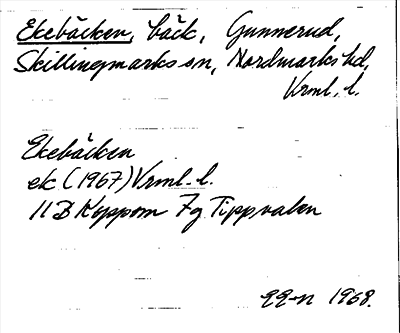 Ekebäcken, bäck, Gunnerud,
Skillingmarks sn, Nordmarks hd,
Vrml. l.
Ekebäcken
ek (1967) Vrml. l.
11 B Koppom 7g Tippvalen
1968.